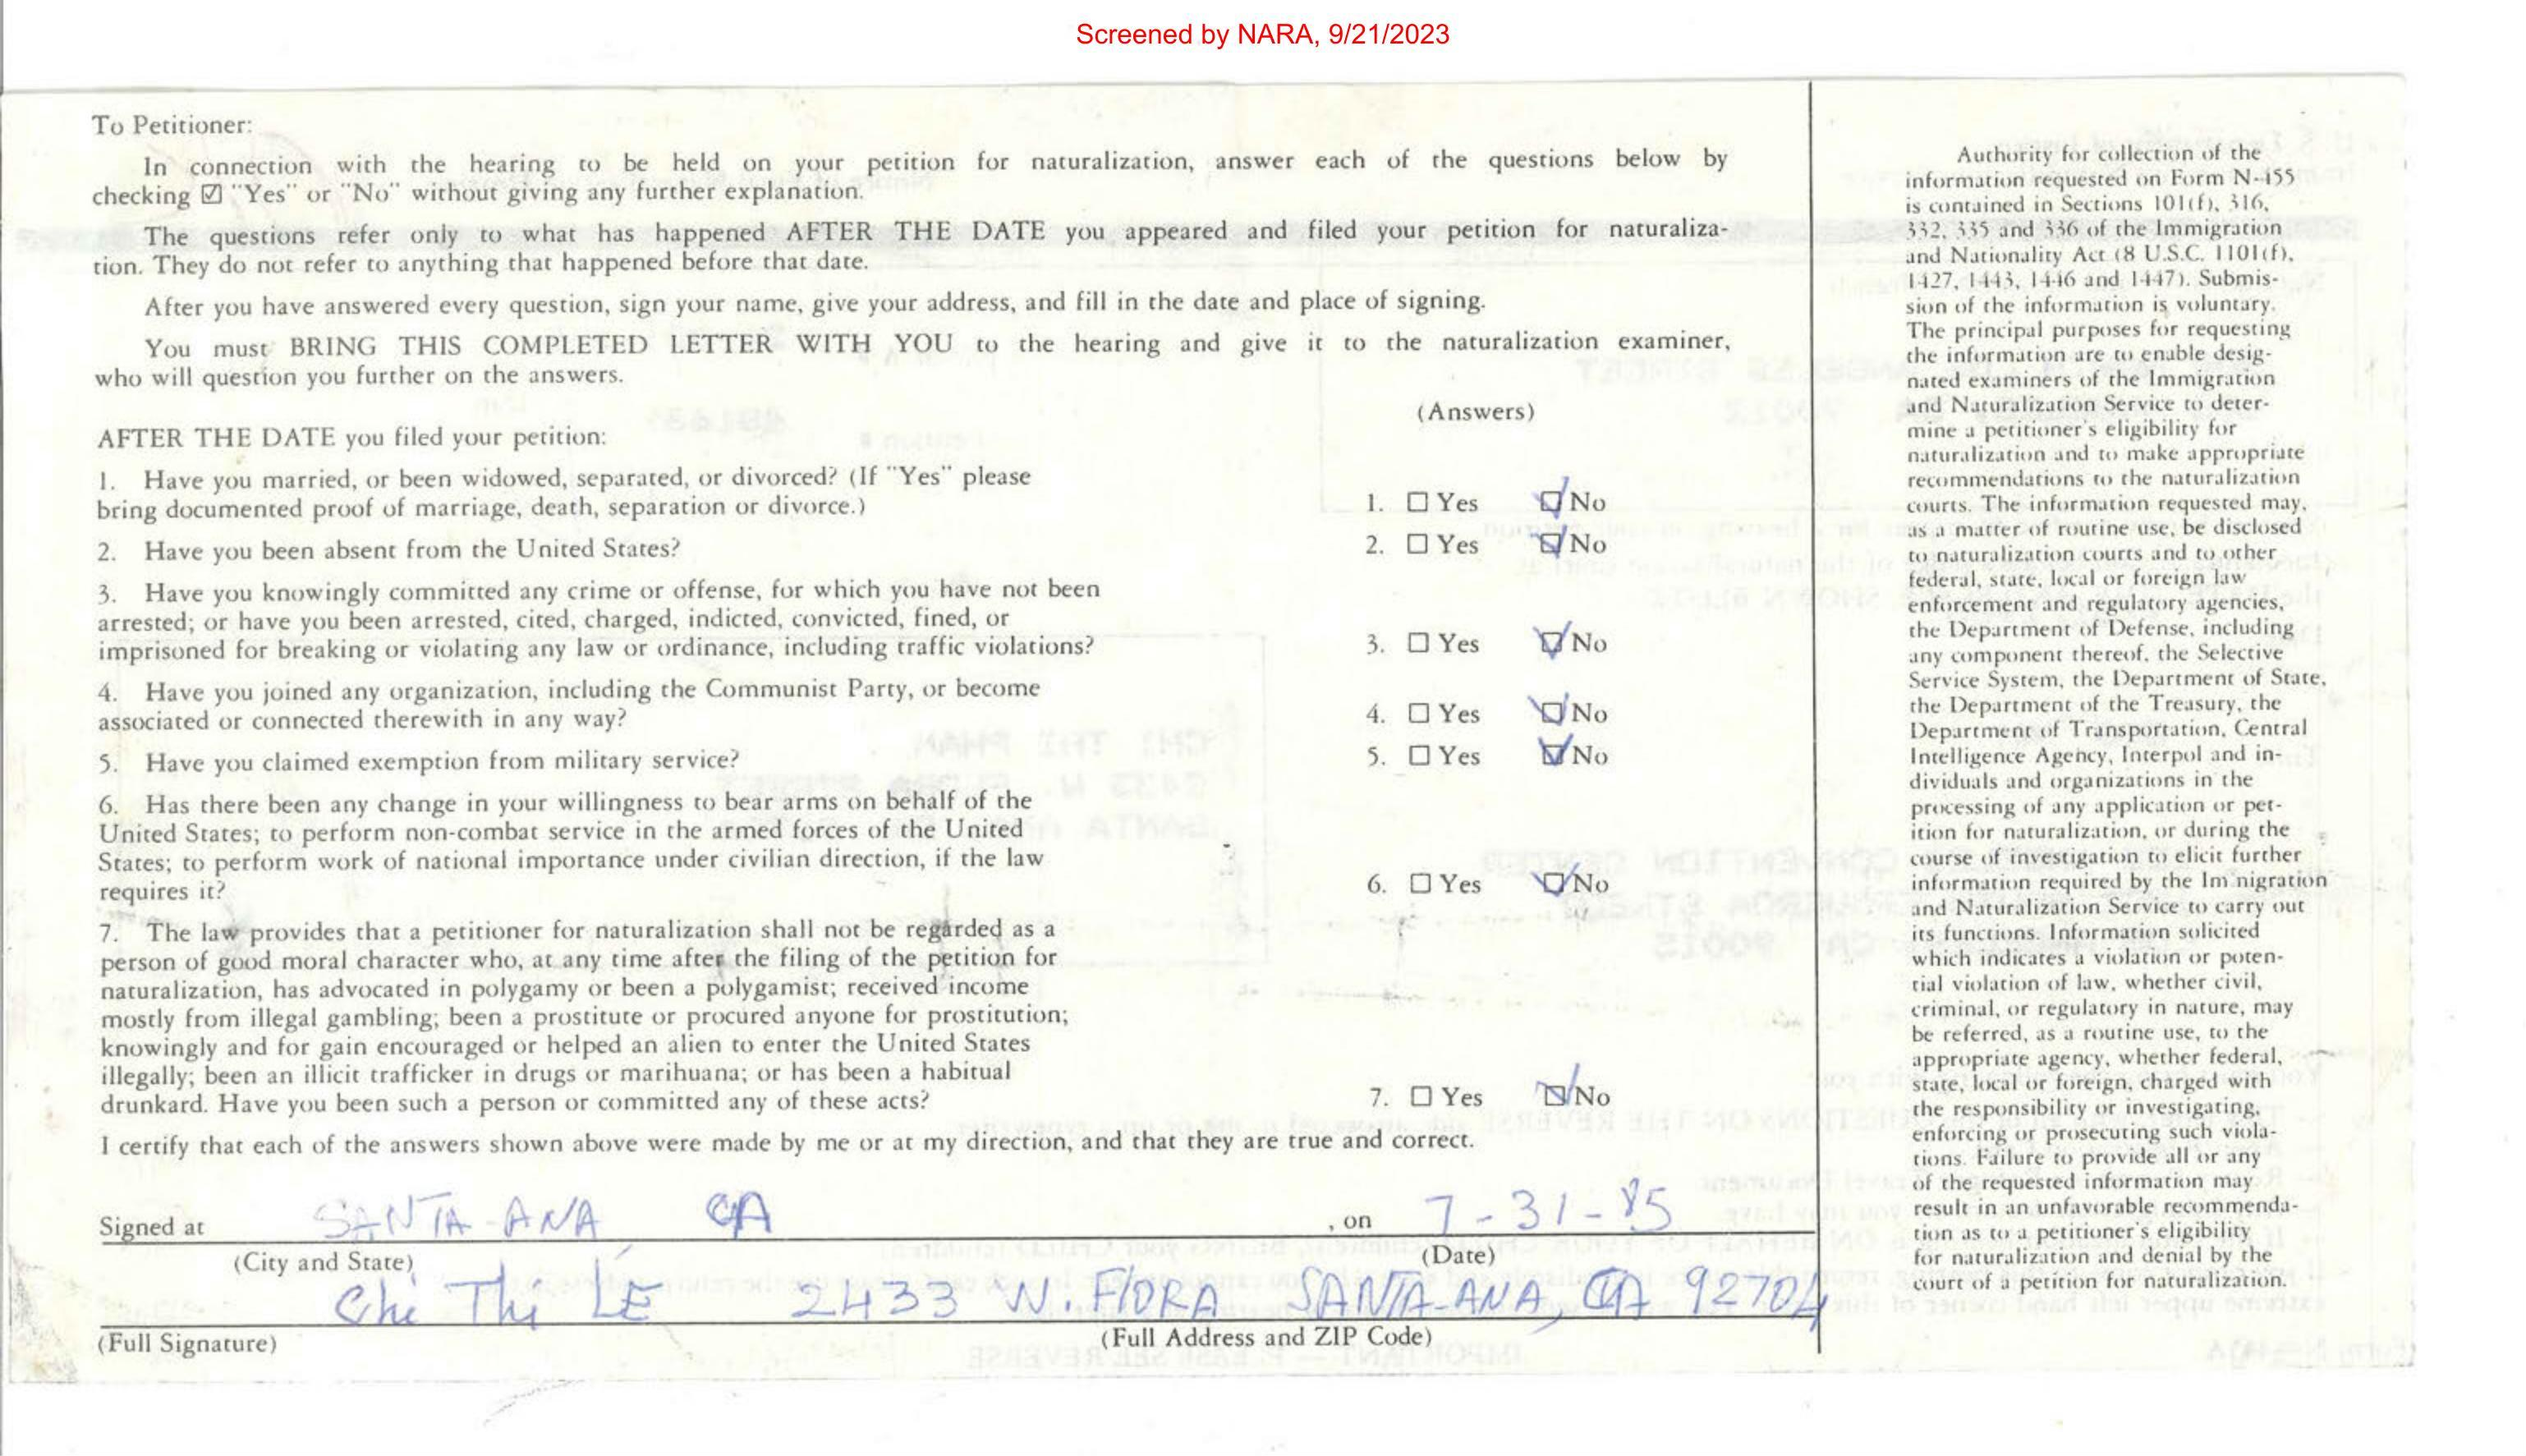 Screened by NARA, 9/21/2023
To Petitioner:
In connection with the hearing to be held on your petition for naturalization, answer each of the questions below by
checking ☑ "Yes" or "No" without giving any further explanation.
The questions refer only to what has happened AFTER THE DATE you appeared and filed your petition for naturaliza-
tion. They do not refer to anything that happened before that date.
After you have answered every question, sign your name, give your address, and fill in the date and place of signing.
You must BRING THIS COMPLETED LETTER WITH YOU to the hearing and give it to the naturalization examiner,
who will question you further on the answers.
(Answers)
AFTER THE DATE you filed your petition:
1. Have you married, or been widowed, separated, or divorced? (If "Yes" please
bring documented proof of marriage, death, separation or divorce.)
1. ☐ Yes ☑ No
2. Have you been absent from the United States?
2. ☐ Yes ☑ No
3. Have you knowingly committed any crime or offense, for which you have not been
arrested; or have you been arrested, cited, charged, indicted, convicted, fined, or
imprisoned for breaking or violating any law or ordinance, including traffic violations?
3. ☐ Yes ☑ No
4. Have you joined any organization, including the Communist Party, or become
associated or connected therewith in any way?
4. ☐ Yes ☑ No
5. Have you claimed exemption from military service?
5. ☐ Yes ☑ No
6. Has there been any change in your willingness to bear arms on behalf of the
United States; to perform non-combat service in the armed forces of the United
States; to perform work of national importance under civilian direction, if the law
requires it?
6. ☐ Yes ☑ No
7. The law provides that a petitioner for naturalization shall not be regarded as a
person of good moral character who, at any time after the filing of the petition for
naturalization, has advocated in polygamy or been a polygamist; received income
mostly from illegal gambling; been a prostitute or procured anyone for prostitution;
knowingly and for gain encouraged or helped an alien to enter the United States
illegally; been an illicit trafficker in drugs or marihuana; or has been a habitual
drunkard. Have you been such a person or committed any of these acts?
7. ☐ Yes ☑ No
I certify that each of the answers shown above were made by me or at my direction, and that they are true and correct.
Signed at SANTA-ANA CA , on 7-31-85
(City and State) (Date)
Chi Thi LÊ 2433 W. FlORA SANTA-ANA, CA 92704
(Full Signature) (Full Address and ZIP Code)
Authority for collection of the
information requested on Form N-455
is contained in Sections 101(f), 316,
332, 335 and 336 of the Immigration
and Nationality Act (8 U.S.C. 1101(f),
1427, 1443, 1446 and 1447). Submis-
sion of the information is voluntary.
The principal purposes for requesting
the information are to enable desig-
nated examiners of the Immigration
and Naturalization Service to deter-
mine a petitioner's eligibility for
naturalization and to make appropriate
recommendations to the naturalization
courts. The information requested may,
as a matter of routine use, be disclosed
to naturalization courts and to other
federal, state, local or foreign law
enforcement and regulatory agencies,
the Department of Defense, including
any component thereof, the Selective
Service System, the Department of State,
the Department of the Treasury, the
Department of Transportation, Central
Intelligence Agency, Interpol and in-
dividuals and organizations in the
processing of any application or pet-
ition for naturalization, or during the
course of investigation to elicit further
information required by the Im nigration
and Naturalization Service to carry out
its functions. Information solicited
which indicates a violation or poten-
tial violation of law, whether civil,
criminal, or regulatory in nature, may
be referred, as a routine use, to the
appropriate agency, whether federal,
state, local or foreign, charged with
the responsibility or investigating,
enforcing or prosecuting such viola-
tions. Failure to provide all or any
of the requested information may
result in an unfavorable recommenda-
tion as to a petitioner's eligibility
for naturalization and denial by the
court of a petition for naturalization.